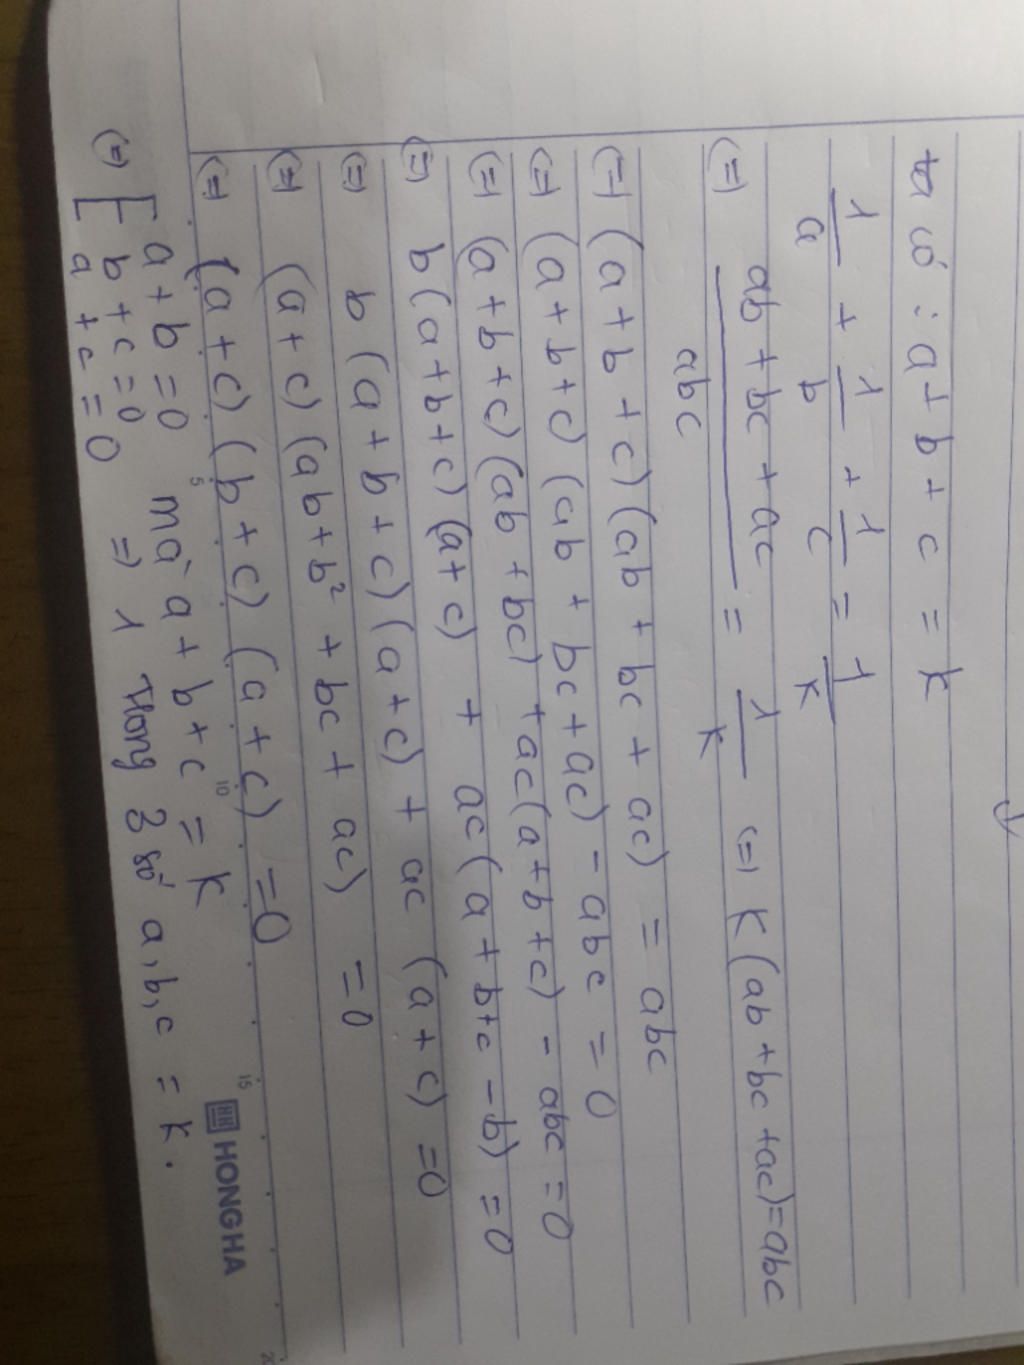 ta có : a + b + c = k
1/a + 1/b + 1/c = 1/k
(=) ab + bc + ac / abc = 1/k (=) k(ab + bc + ac) = abc
(=) (a + b + c)(ab + bc + ac) = abc
(=) (a + b + c)(ab + bc + ac) - abc = 0
(=) (a + b + c)(ab + bc) + ac(a + b + c) - abc = 0
(=) b(a + b + c)(a + c) + ac(a + b + c - b) = 0
(=) b(a + b + c)(a + c) + ac(a + c) = 0
(=) (a + c)(ab + b² + bc + ac) = 0
(=) (a + c)(b + c)(a + c) = 0
(=) [ a + b = 0 mà a + b + c = k
b + c = 0
a + c = 0 => 1 trong 3 số a, b, c = k.
5 10 15 20
HONG HA